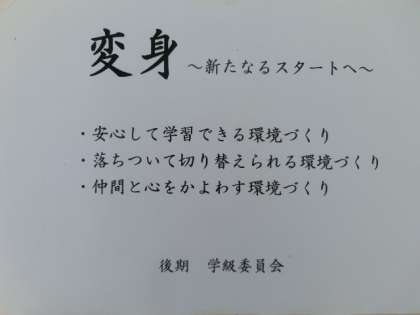 変身 ～新たなるスタートへ～
・安心して学習できる環境づくり
・落ちついて切り替えられる環境づくり
・仲間と心をかよわす環境づくり
後期　学級委員会